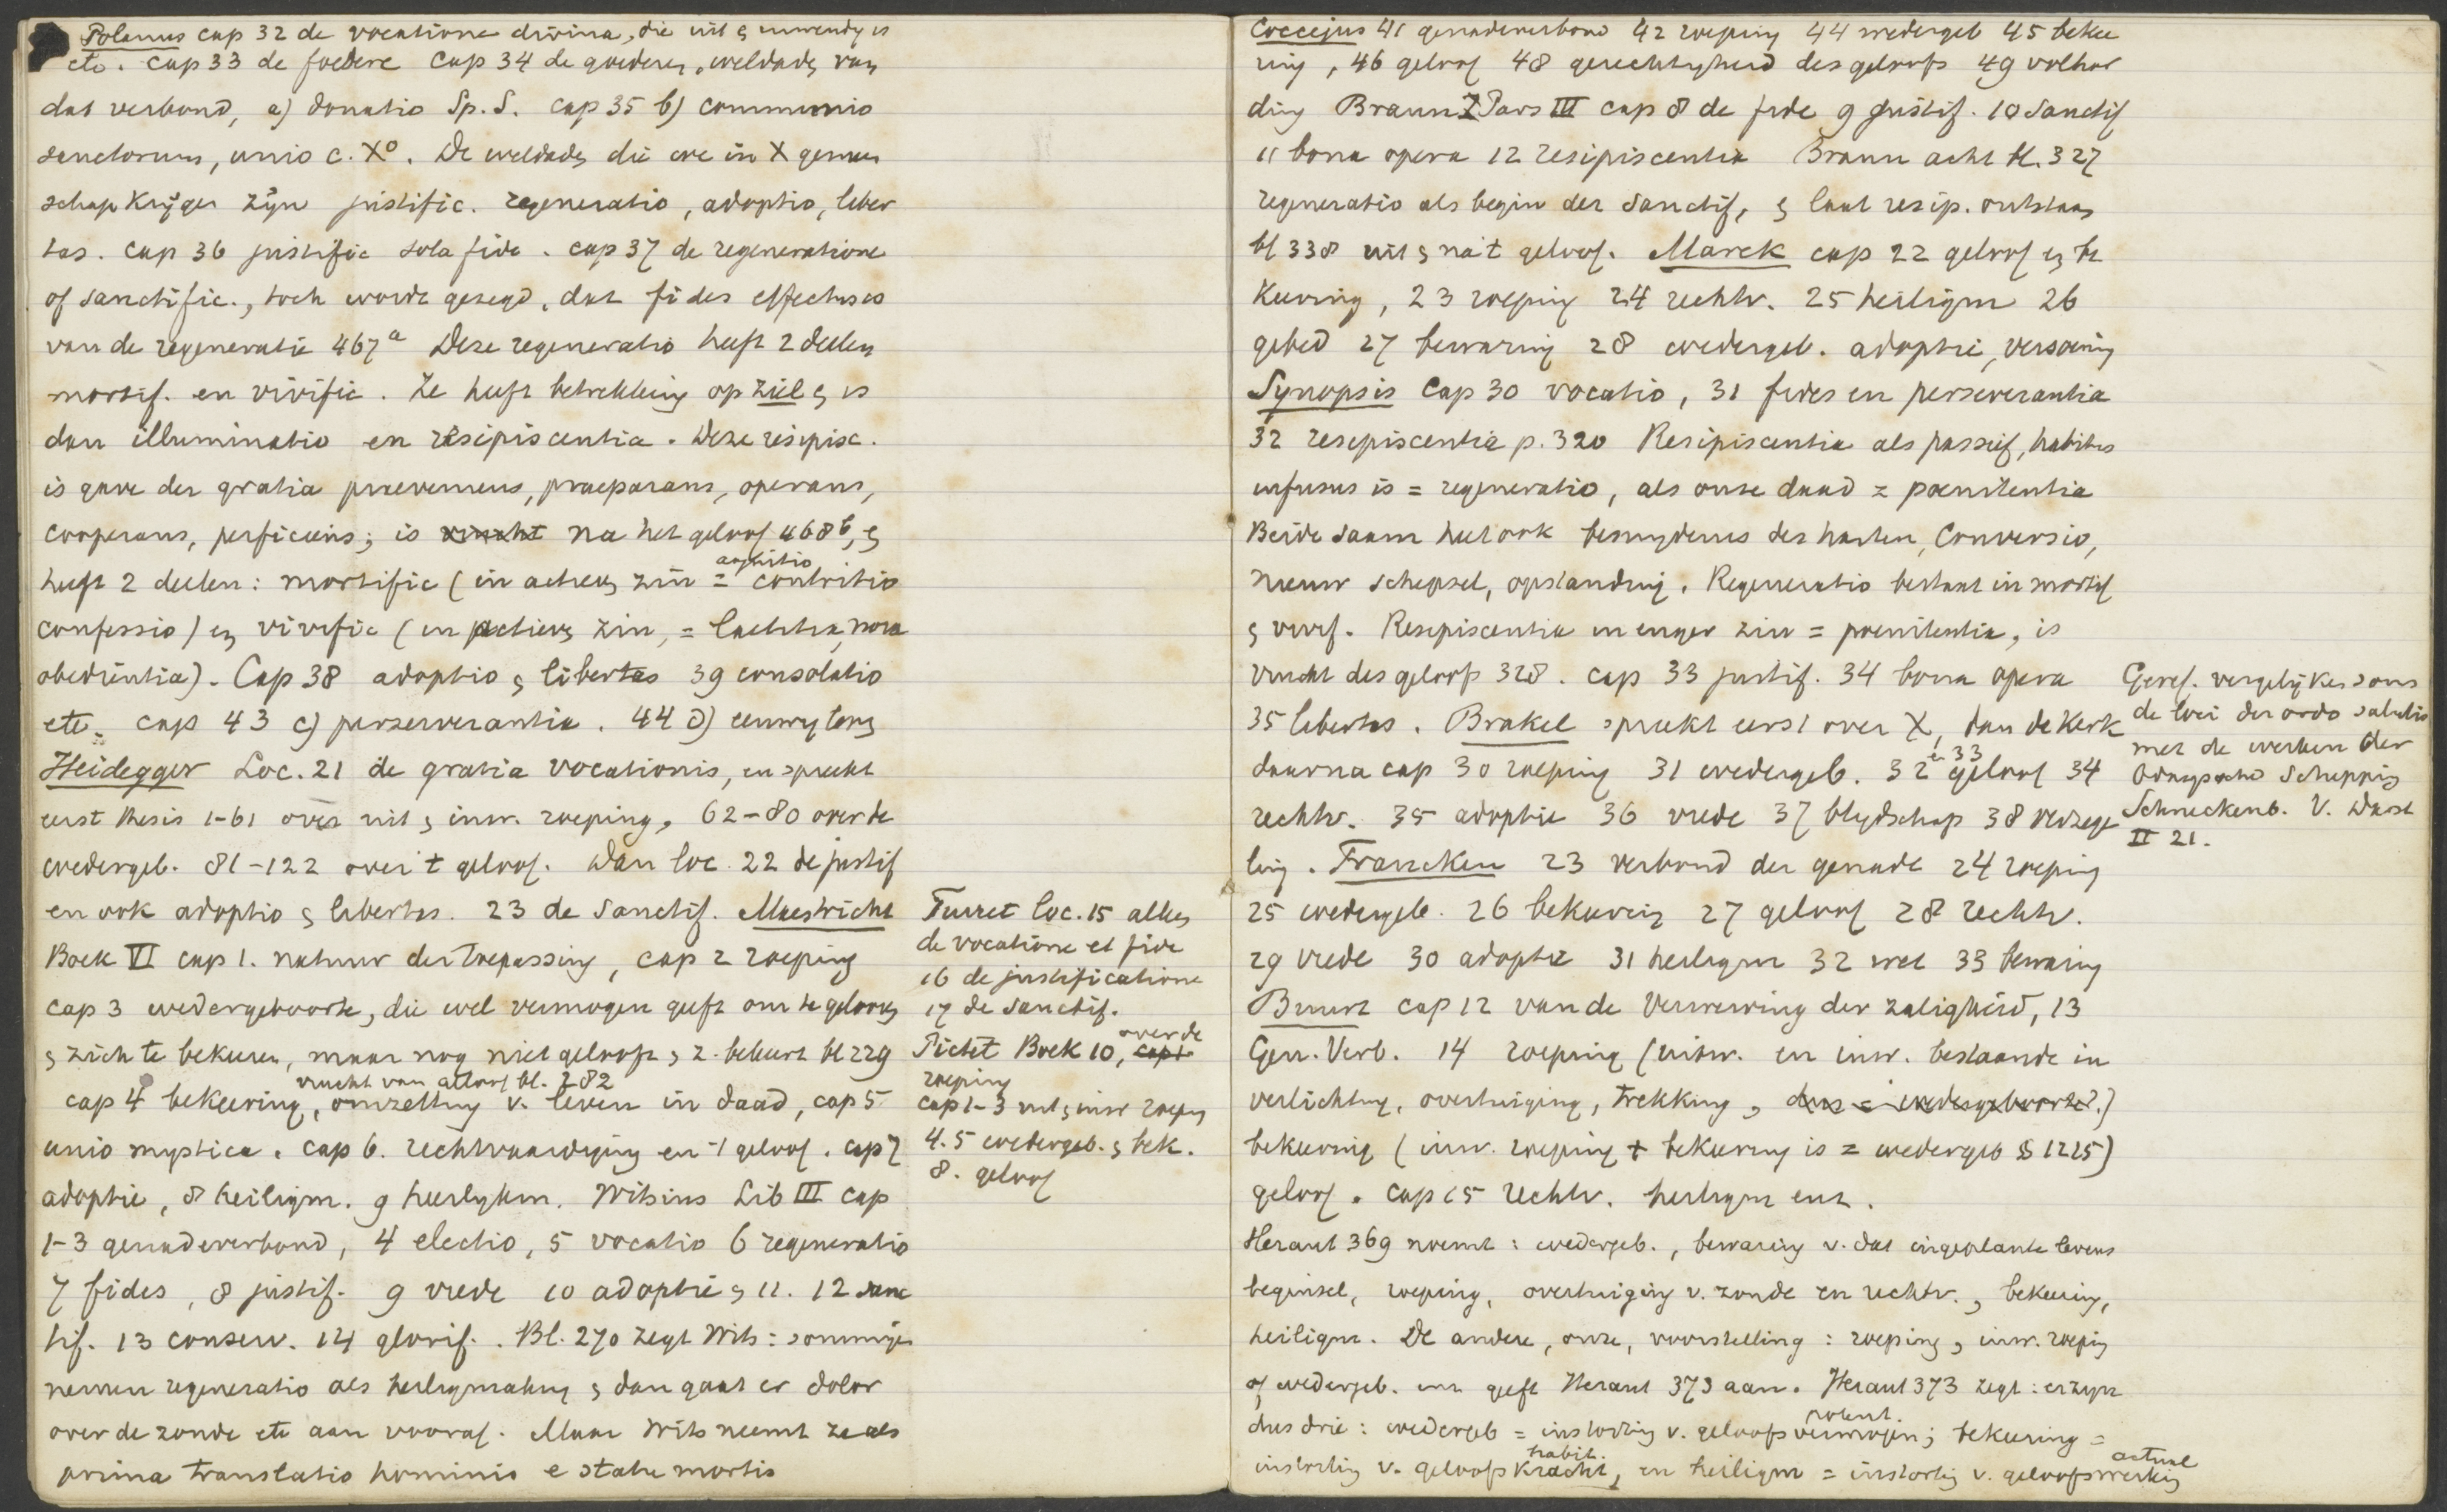 Polanus cap 32 de vocatione divina, die uit & inwendig is
etc. cap 33 de foedere cap 34 de goederen, weldaden van
dat verbond, a) donatio Sp. S. cap 35 b) communio
sanctorum, unio c. X°. De weldaden die we in X gemeen
schap krijgen zijn justific. regeneratio, adoptio, liber
tas. cap 36 justific sola fide. cap 37 de regeneratione
of sanctific., toch wordt gezegd, dat fides effectus is
van de regeneratie 467a Deze regeneratio heeft 2 deelen
mortif. en vivific. Ze heeft betrekking op ziel & is
dan illuminatio en resipiscentia. Deze resipisc.
is gave der gratia praeveniens, praeparans, operans,
cooperans, perficiens; is vrucht na het geloof 468b, &
heeft 2 deelen: mortific (in actieven zin = agnitio contritio
confessio) en vivific (in actieven zin, = laetitia, nova
obedientia). Cap 38 adoptio & libertas 39 consolatio
etc. cap 43 c) perseverantia. 44 d) eeuwig leven
Heidegger Loc. 21 de gratia vocationis, en spreekt
eerst thesis 1-61 over uit & inw. roeping, 62-80 over de
wedergeb. 81-122 over 't geloof. Dan loc. 22 de justif
en ook adoptio & libertas. 23 de Sanctif. Mastricht
Boek VI cap 1. natuur der toepassing, cap 2 roeping
cap 3 wedergeboorte, die wel vermogen geeft om te gelooven
& zich te bekeeren, maar nog niet gelooft & z. bekeert bl 229
vrucht van geloof bl. 282
cap 4 bekeering, omzetting v. leven in daad, cap 5
unio mystica. cap 6. rechtvaardiging en 't geloof. cap 7
adoptie, 8 heiligm. 9 heerlykm. Witsius Lib III cap
1-3 genadeverbond, 4 electio, 5 vocatio 6 regeneratio
7 fides, 8 justif. 9 vrede 10 adoptie & 11. 12 sanc
tif. 13 conserv. 14 glorif. Bl. 270 zegt Wits: sommigen
nemen regeneratio als heiligmaking & dan gaat er dolor
over de zonde etc aan vooraf. Maar Wits neemt ze als
prima translatio hominis e statu mortis
Turret loc. 15 alles
de vocatione et fide
16 de justificatione
17 de Sanctif.
Pictet Boek 10, cap 1 over de
roeping
cap 1-3 uit & inw roeping
4. 5 wedergeb. & bek.
8. geloof
Coccejus 41 genadeverbond 42 roeping 44 wedergeb 45 bekee
ring, 46 geloof 48 gerechtigheid des geloofs 49 volhar
ding Braun Pars III cap 8 de fide 9 justif. 10 Sanctif
11 bona opera 12 resipiscentia Braun acht bl. 327
regeneratio als begin der Sanctif, & laat resip. ontstaan
bl 338 uit & na 't geloof. Marck cap 22 geloof en be
keering, 23 roeping 24 rechtv. 25 heiligm 26
gebed 27 bewaring 28 wedergeb. adoptie, verzoening
Synopsis Cap 30 vocatio, 31 fides en perseverantia
32 resipiscentia p. 320 Resipiscentia als passief, habitus
infusus is = regeneratio, als onze daad = poenitentia
Beide saam heet ook besnydenis des harten, Conversio,
nieuw schepsel, opstanding. Regeneratio bestaat in mortif
& vivif. Resipiscentia in enger zin = poenitentia, is
vrucht des geloofs 328. cap 33 justif. 34 bona opera
35 libertas. Brakel spreekt eerst over X, dan de Kerk
daarna cap 30 roeping 31 wedergeb. 32 en 33 geloof 34
rechtv. 35 adoptie 36 vrede 37 blydschap 38 verzege
ling. Francken 23 verbond der genade 24 roeping
25 wedergeb. 26 bekeering 27 geloof 28 rechtv.
29 vrede 30 adoptie 31 heiligm 32 wet 33 bewaring
Buurt cap 12 van de Verwerving der zaligheid, 13
Gen. Verb. 14 roeping (uitw. en inw. bestaande in
verlichting, overtuiging, trekking, dus = wedergeboorte?)
bekeering (inw. roeping + bekeering is = wedergeb § 1225)
geloof. cap 15 rechtv. heiligm enz.
Heraut 369 noemt: wedergeb., bewaring v. dat ingeplante levens
beginsel, roeping, overtuiging v. zonde en rechtv., bekeering,
heiligm. De andere, onze, voorstelling: roeping, inw. roeping
of wedergeb. enz geeft Heraut 373 aan. Heraut 373 zegt: er zyn
dus drie: wedergeb = instorting v. geloofsvermogen potent.; bekeering =
instorting v. geloofskracht habit., en heiligm = instorting v. geloofswerking actueel
Geref. vergelijken soms
de loci der ordo salutis
met de werken der
Schepping
Schneckenb. V. Darst
II 21.